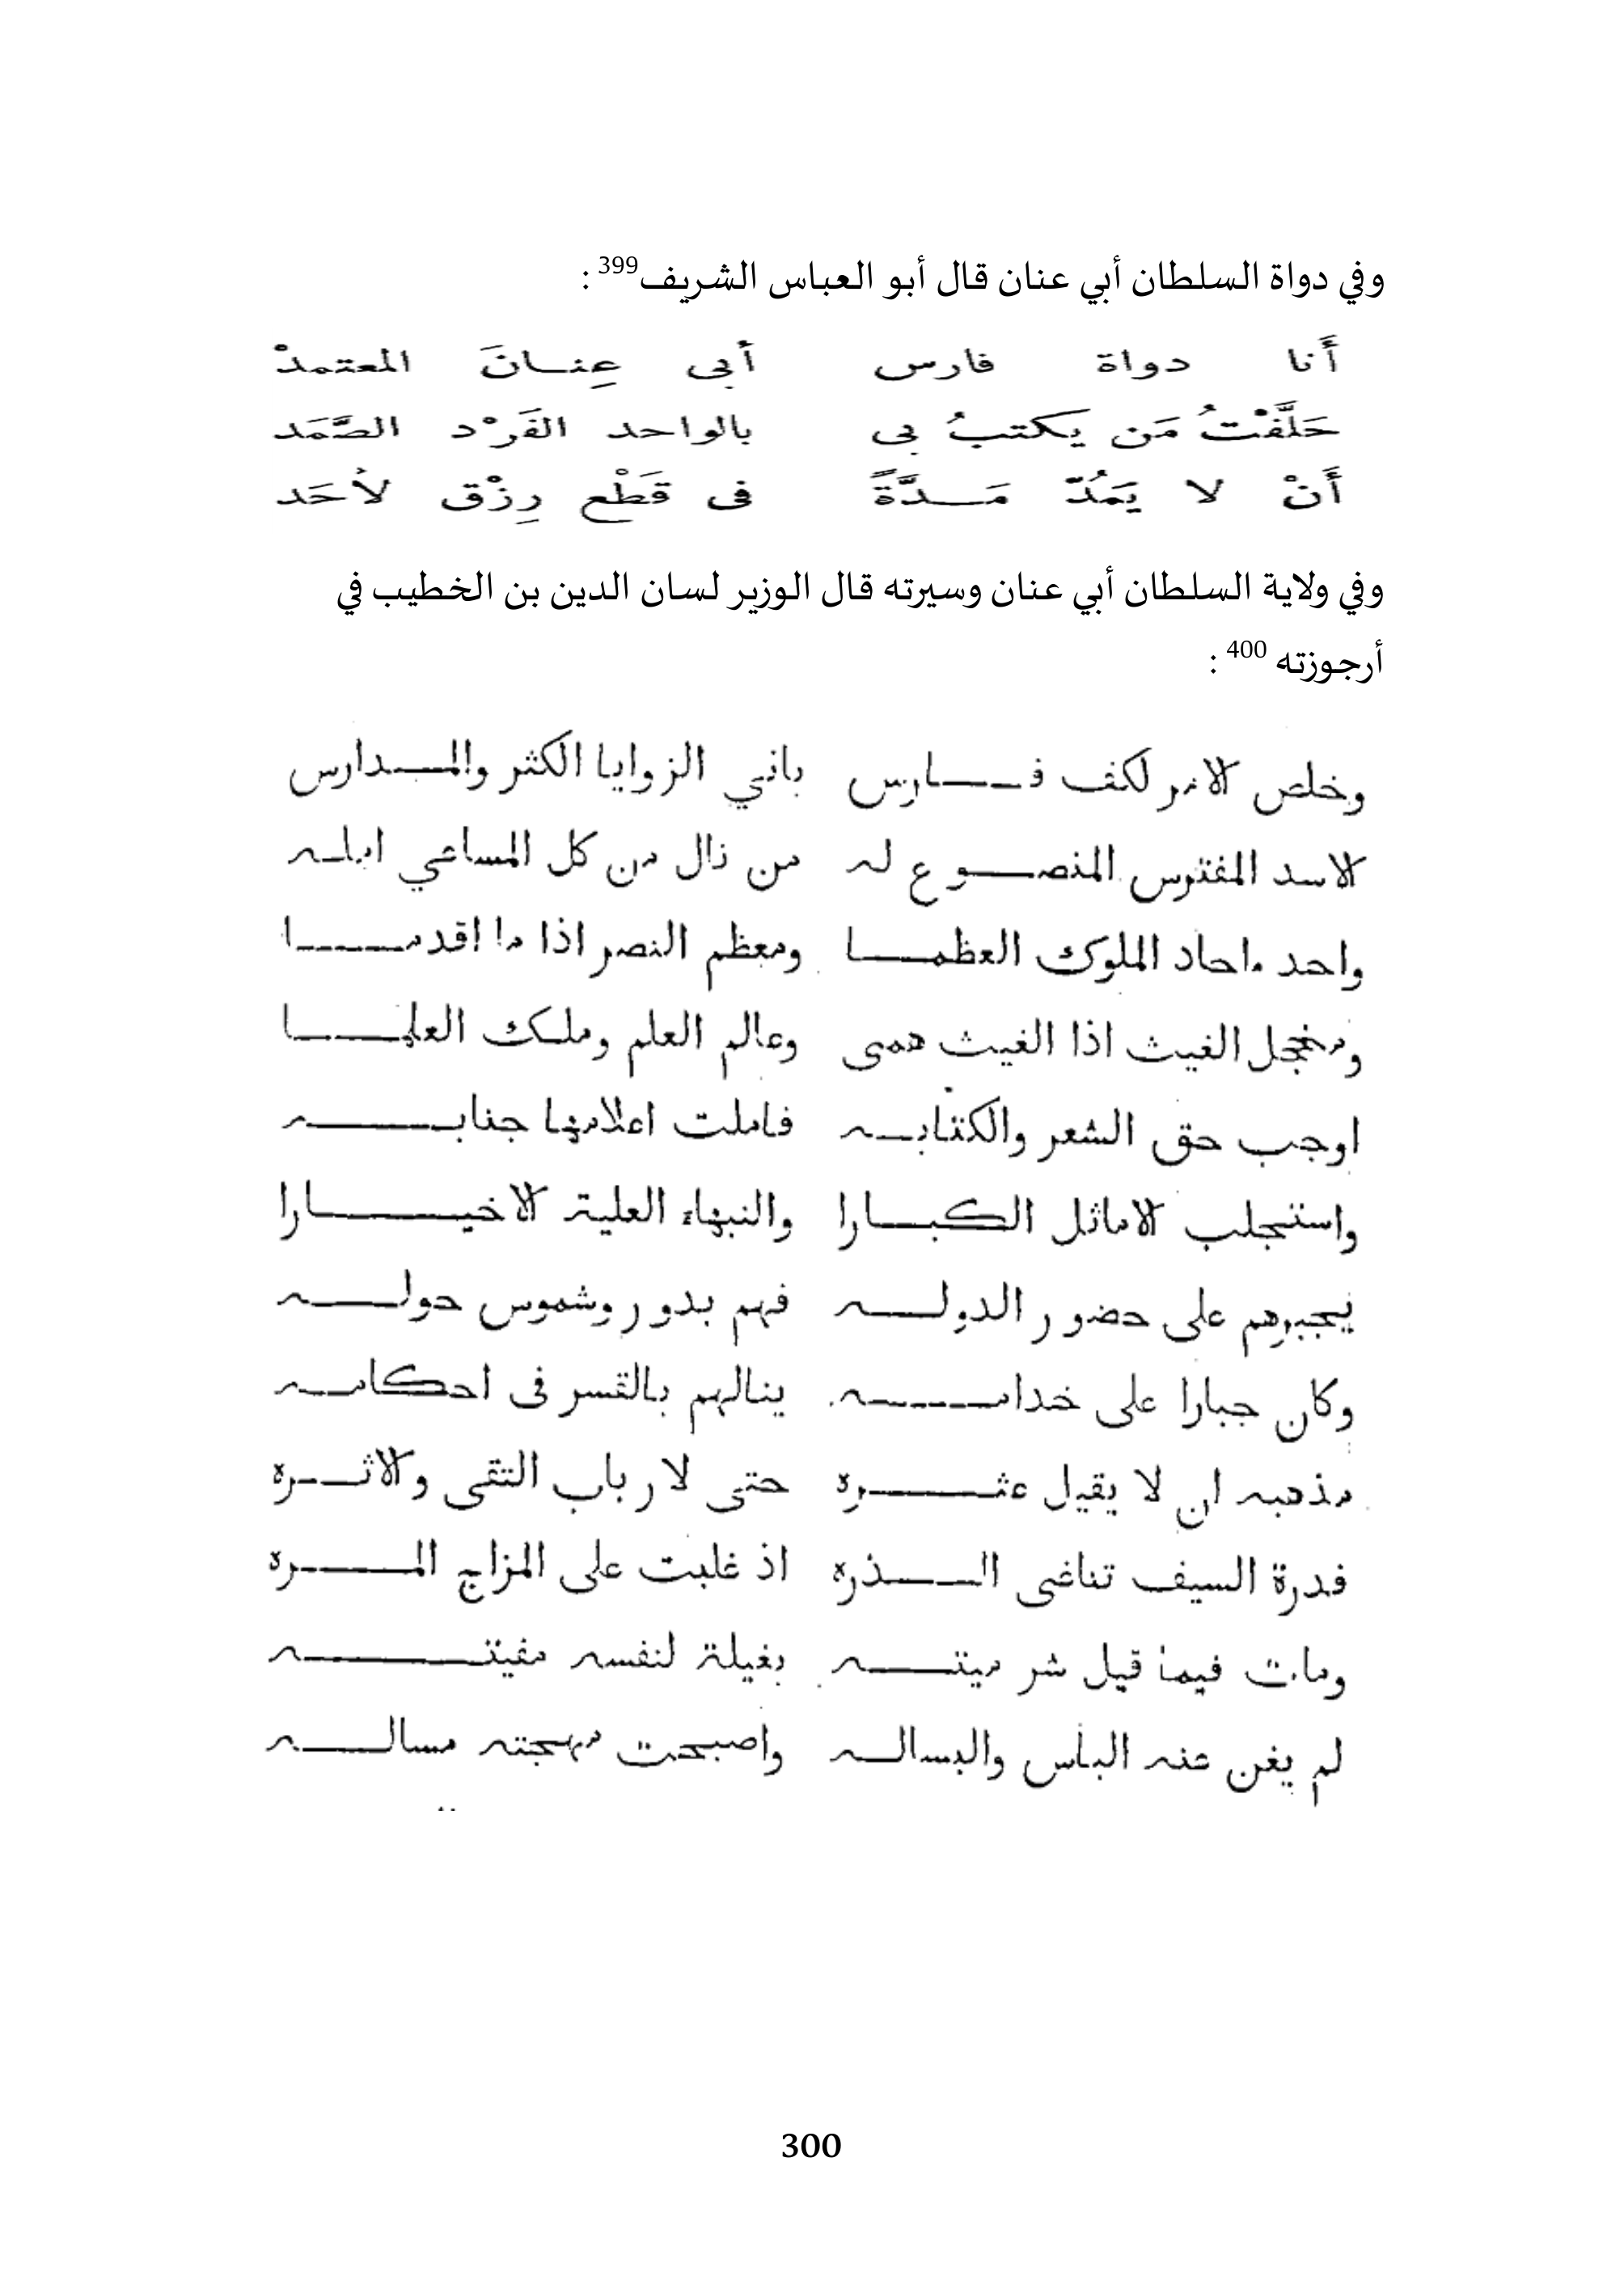 وفي دواة السلطان أبي عنان قال أبو العباس الشريف399 :
أَنا دواة فارس أبى عِنـانَ المعتمدْ
حَلَّفْتُ مَن يكتبُ بى بالواحد الفَرْد الصَّمَد
أَنْ لا يَمُدّ مَـدَّةً فى قَطْع رِزْق لأحَد
وفي ولاية السلطان أبي عنان وسيرته قال الوزير لسان الدين بن الخطيب في
أرجوزته 400 :
وخلص الامر لكف فـارس باني الزوايا الكثر والمـدارس
الاسد المفترس المنصـوع له من نال من كل المساعي املـه
واحد ماحاد الملوك العظمـا ومعظم النصر اذا ما اقدمـا
ومخجل الغيث اذا الغيث همى وعالم العلم وملك العلمـا
اوجب حق الشعر والكتابـه فاملت اعلامها جنابـه
واستجلب الاماثل الكبـارا والنبهاء العلية الاخيـارا
يجبرهم على حضور الدولـه فهم بدور وشموس حولـه
وكان جبارا على خدامـه ينالهم بالقسر فى احكامـه
مذهبه ان لا يقيل عثـره حتى لارباب التقى والاثـره
فدرة السيف تناغى الـذره اذ غلبت على المزاج المـره
ومات فيما قيل شر ميتـه بغيلة لنفسه مفيتـه
لم يغن عنه الباس والبسالـه واصبحت مهجته مسالـه
300